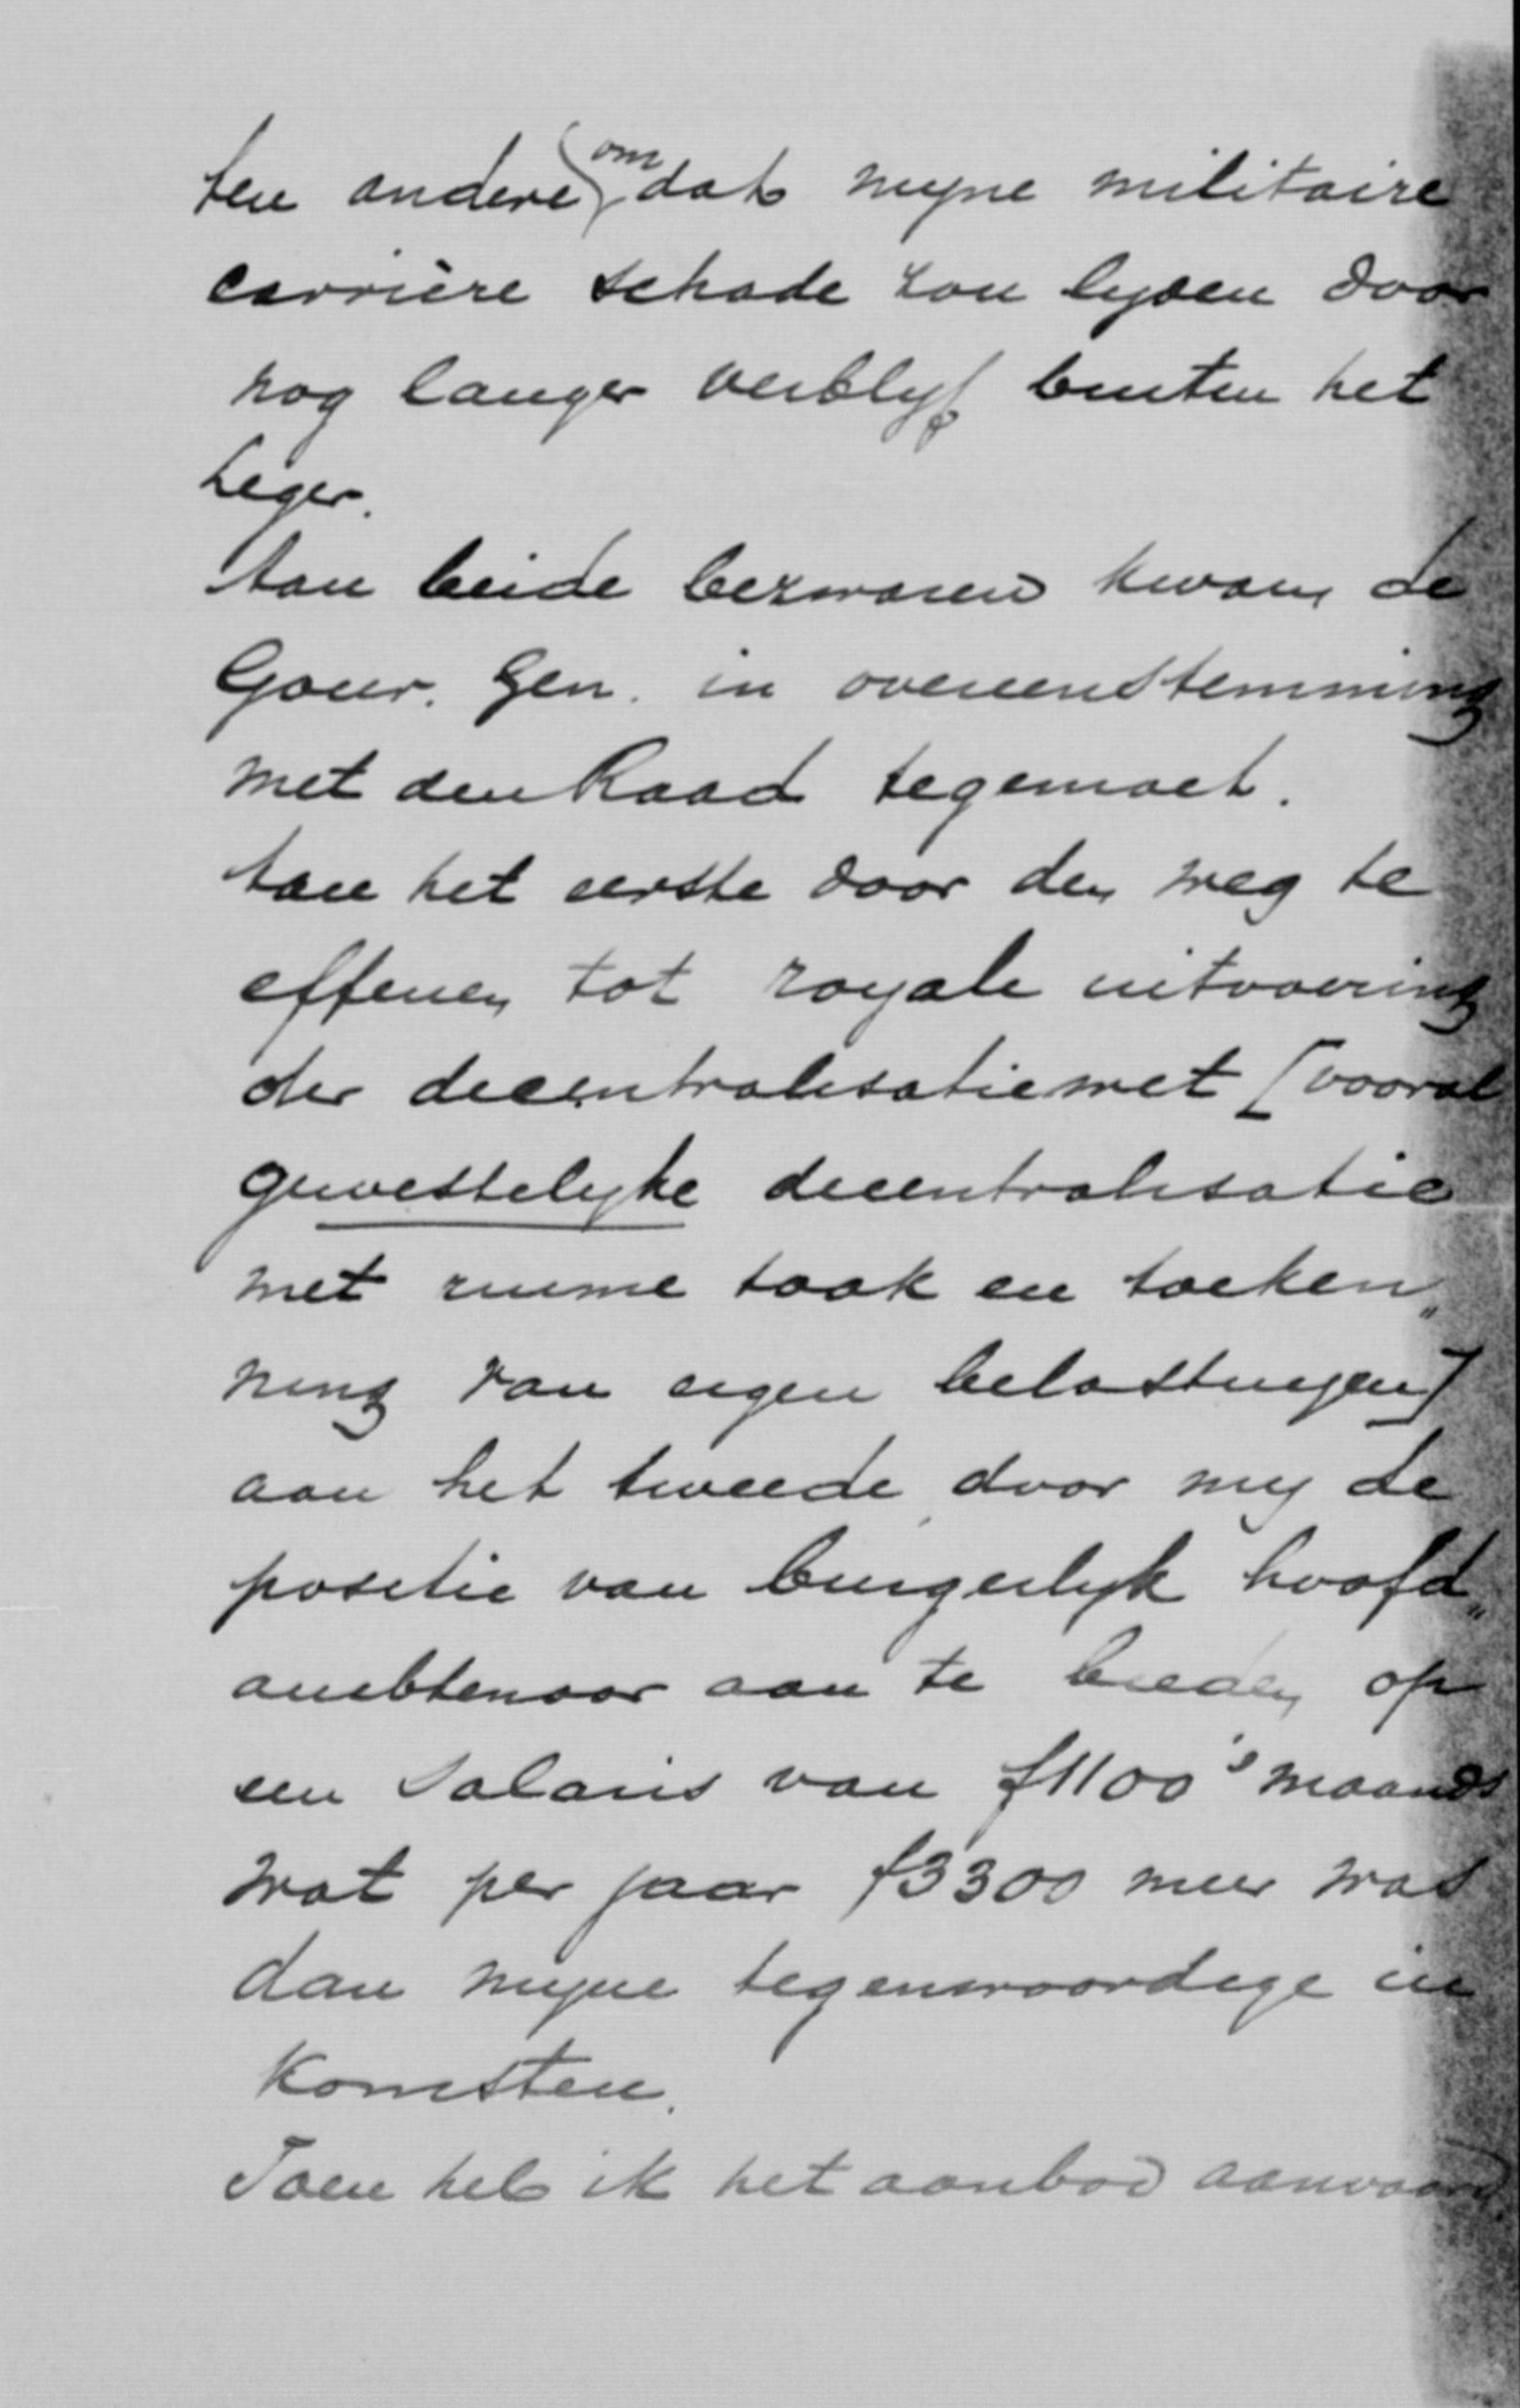 ten andere, omdat myne militaire
carrière schade zou lyden door
nog langer verblyf buiten het
Leger.
Aan beide bezwaren kwam de
Gouv. Gen. in overeenstemming
met den Raad tegemoet.
Aan het eerste door den weg te
effenen tot royale uitvoering
der decentralisatiewet [vooral
gewestelyke decentralisatie
met ruime taak en toeken„
ning van eigen belastingen]
aan het tweede, door my de
positie van burgerlyk hoofd„
ambtenaar aan te bieden op
een salaris van f1100 's maands
wat per jaar f3300 meer was
dan myne tegenwoordige in
komsten.
Toen heb ik het aanbod aanvaard.